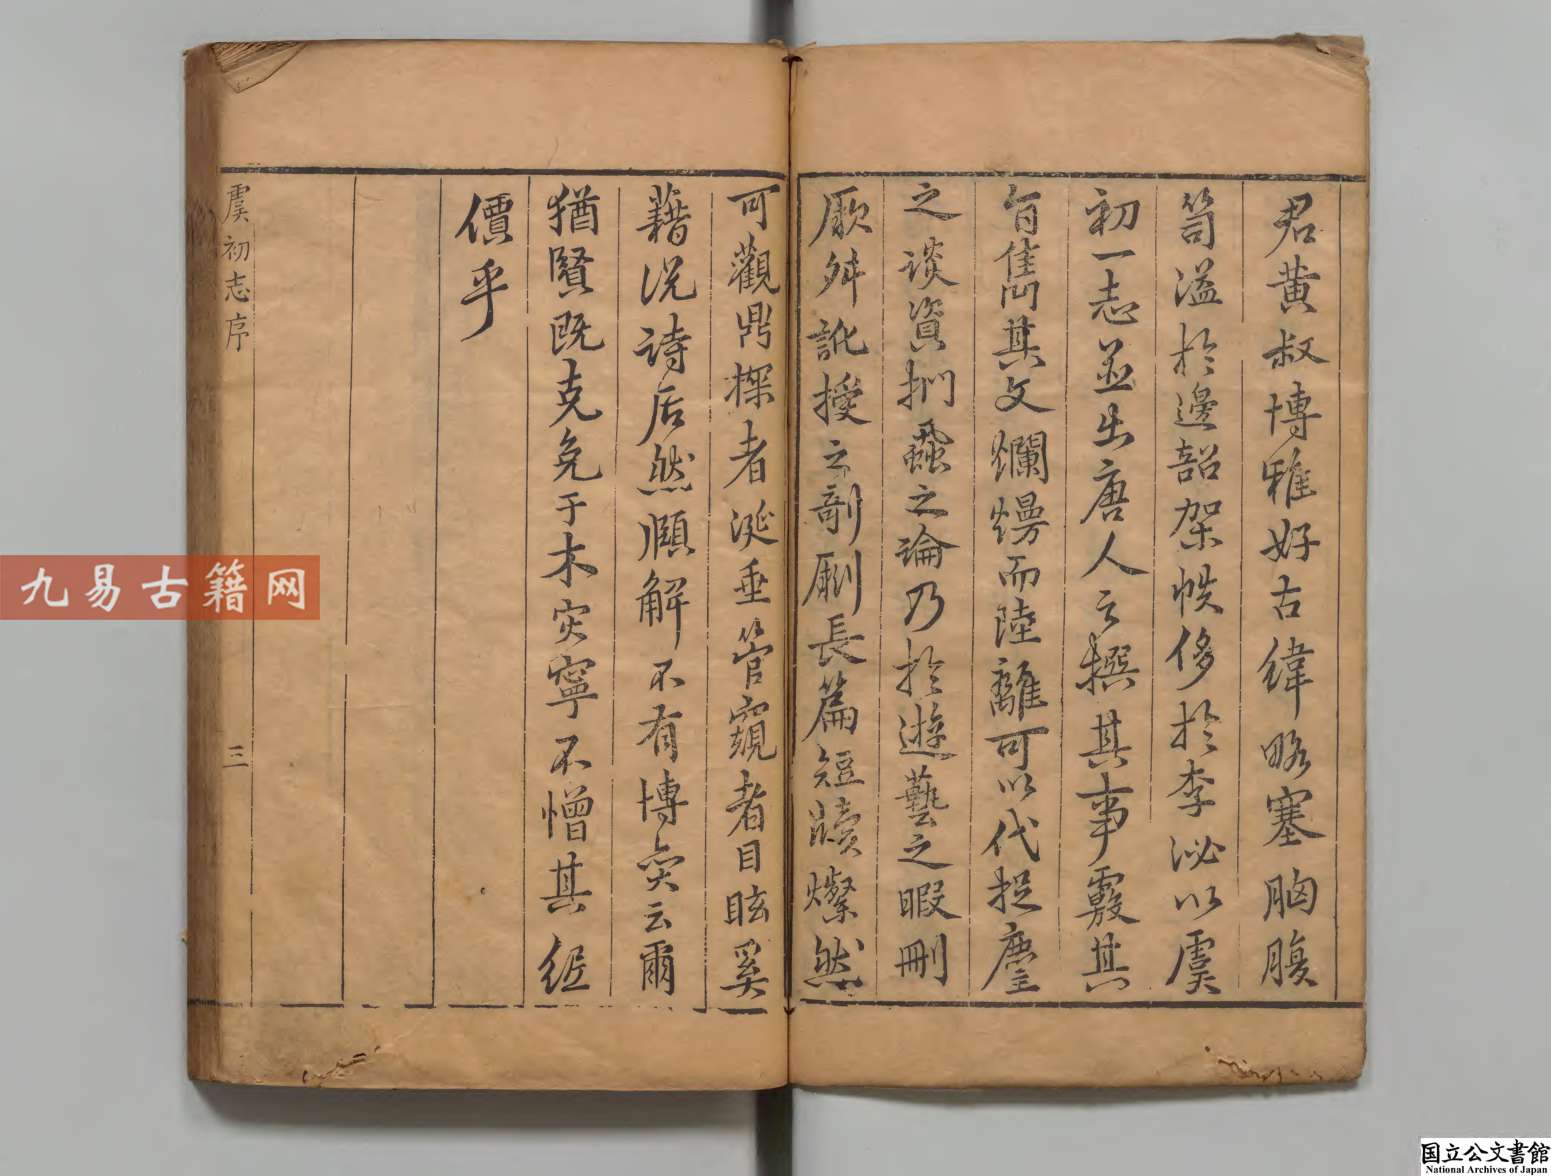 君黄叔博雅好古緯略塞胸腹
笥溢於邊韶架帙侈於李泌以虞
初一志並出唐人之撰其事覈其
旨雋其文爛熳而陸離可以代捉麈
之談資捫蝨之論乃於遊藝之暇刪
厥舛訛授之剞劂長篇短牘燦然
可觀鼎探者涎垂管窺者目眩奚
藉说詩后然頤解不有博奕云爾
猶賢既克免于木灾寧不憎其
價乎
虞初志序
三
九易古籍网
国立公文書館
National Archives of Japan